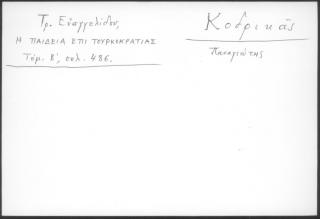 Τρ. Εὐαγγελίδου,
Η ΠΑΙΔΕΙΑ ΕΠΙ ΤΟΥΡΚΟΚΡΑΤΙΑΣ
Τόμ. Β', σελ. 486.
Κοδρικᾶς
Παναγιώτης